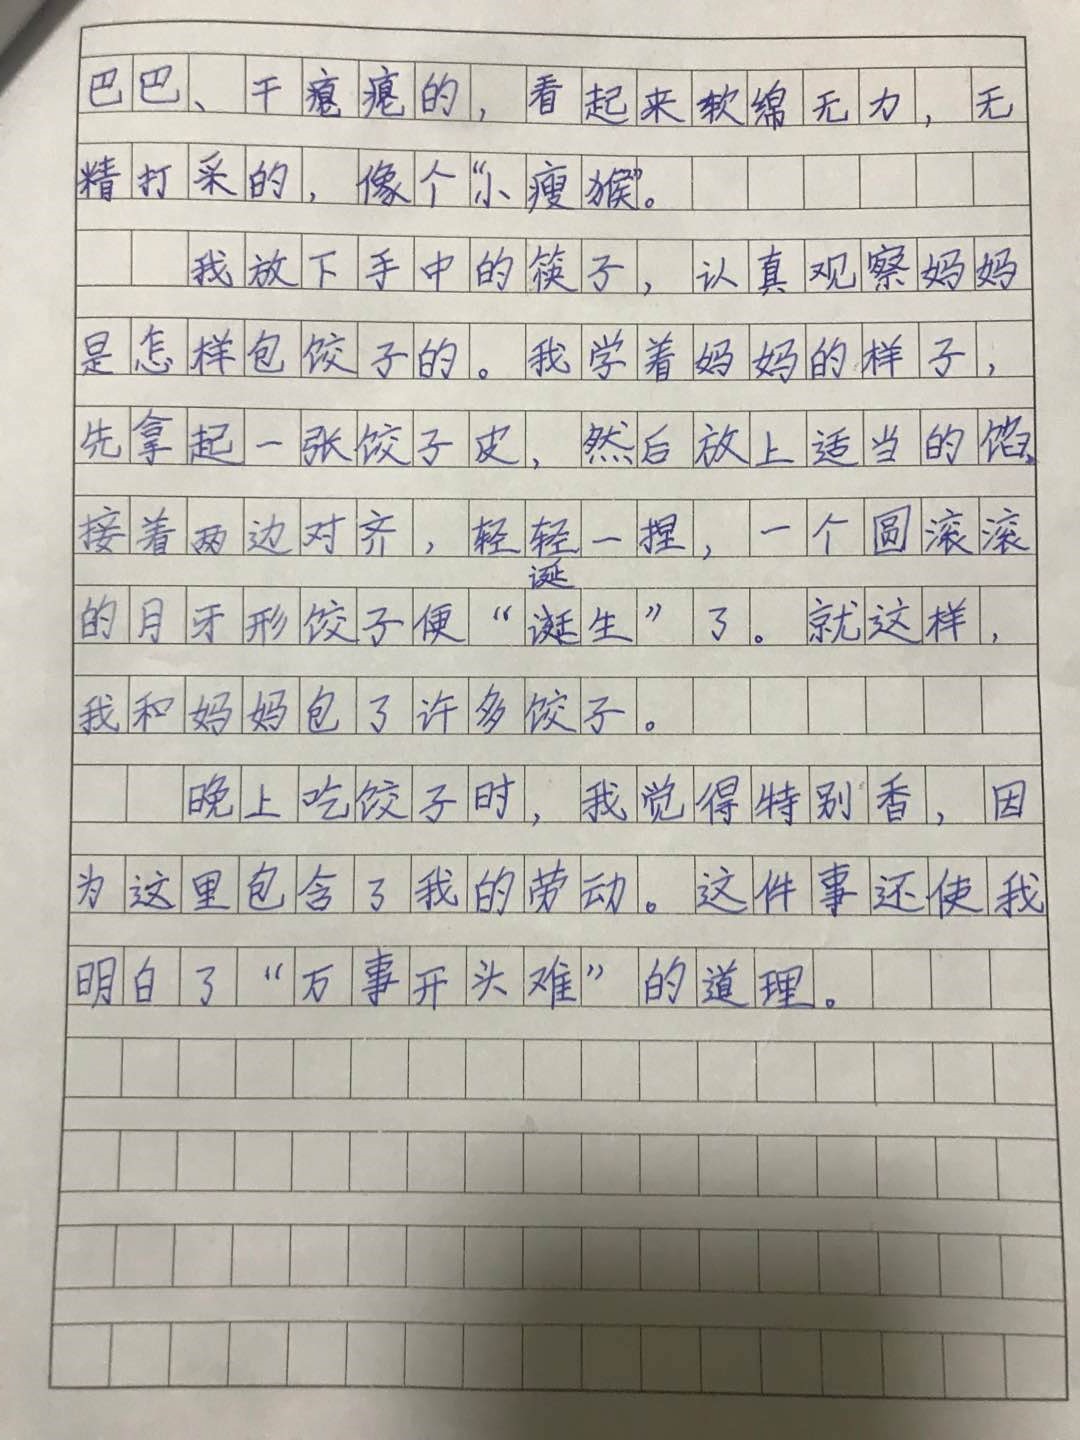 巴巴、干瘪瘪的，看起来软绵无力，无
精打采的，像个“小瘦猴”。
我放下手中的筷子，认真观察妈妈
是怎样包饺子的。我学着妈妈的样子，
先拿起一张饺子皮，然后放上适当的馅，
接着两边对齐，轻轻一捏，一个圆滚滚
诞
的月牙形饺子便“诞生”了。就这样，
我和妈妈包了许多饺子。
晚上吃饺子时，我觉得特别香，因
为这里包含了我的劳动。这件事还使我
明白了“万事开头难”的道理。